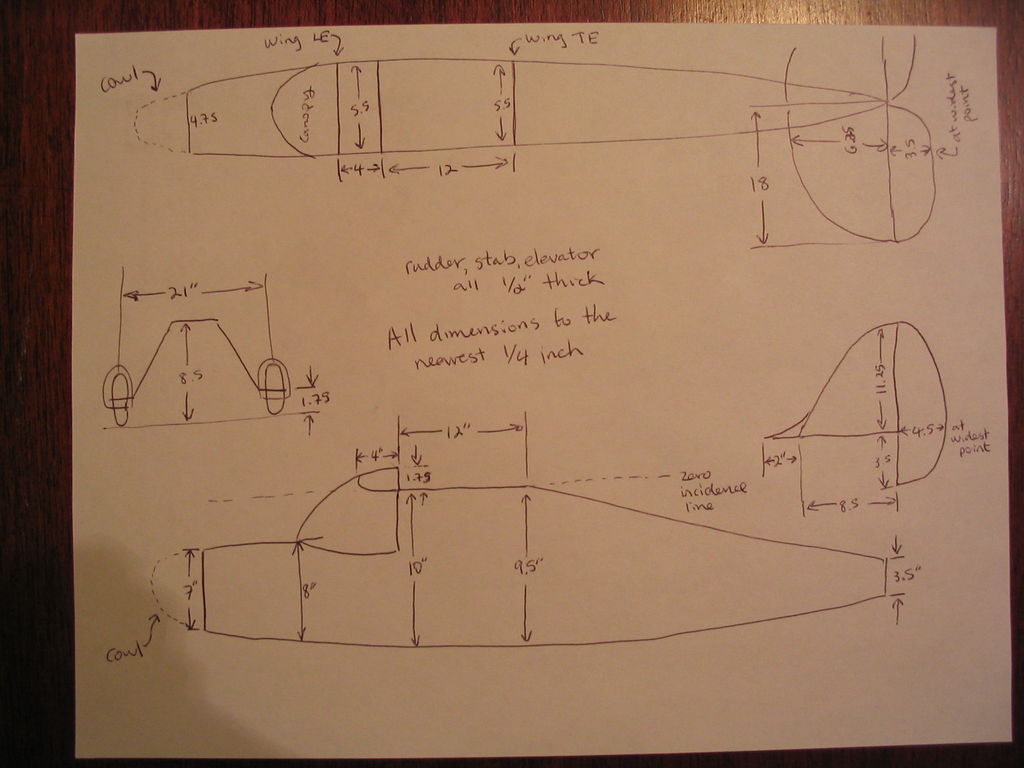 wing LE
wing TE
cowl
4.75
window
5.5
5.5
4
12
18
6.25
3.5
at widest
point
rudder, stab, elevator
all 1/2" thick
All dimensions to the
nearest 1/4 inch
21"
8.5
1.75
12"
4"
1.75
zero
incidence
line
7"
8"
10"
9.5"
3.5"
cowl
11.25
4.5
at
widest
point
3.5
2"
8.5